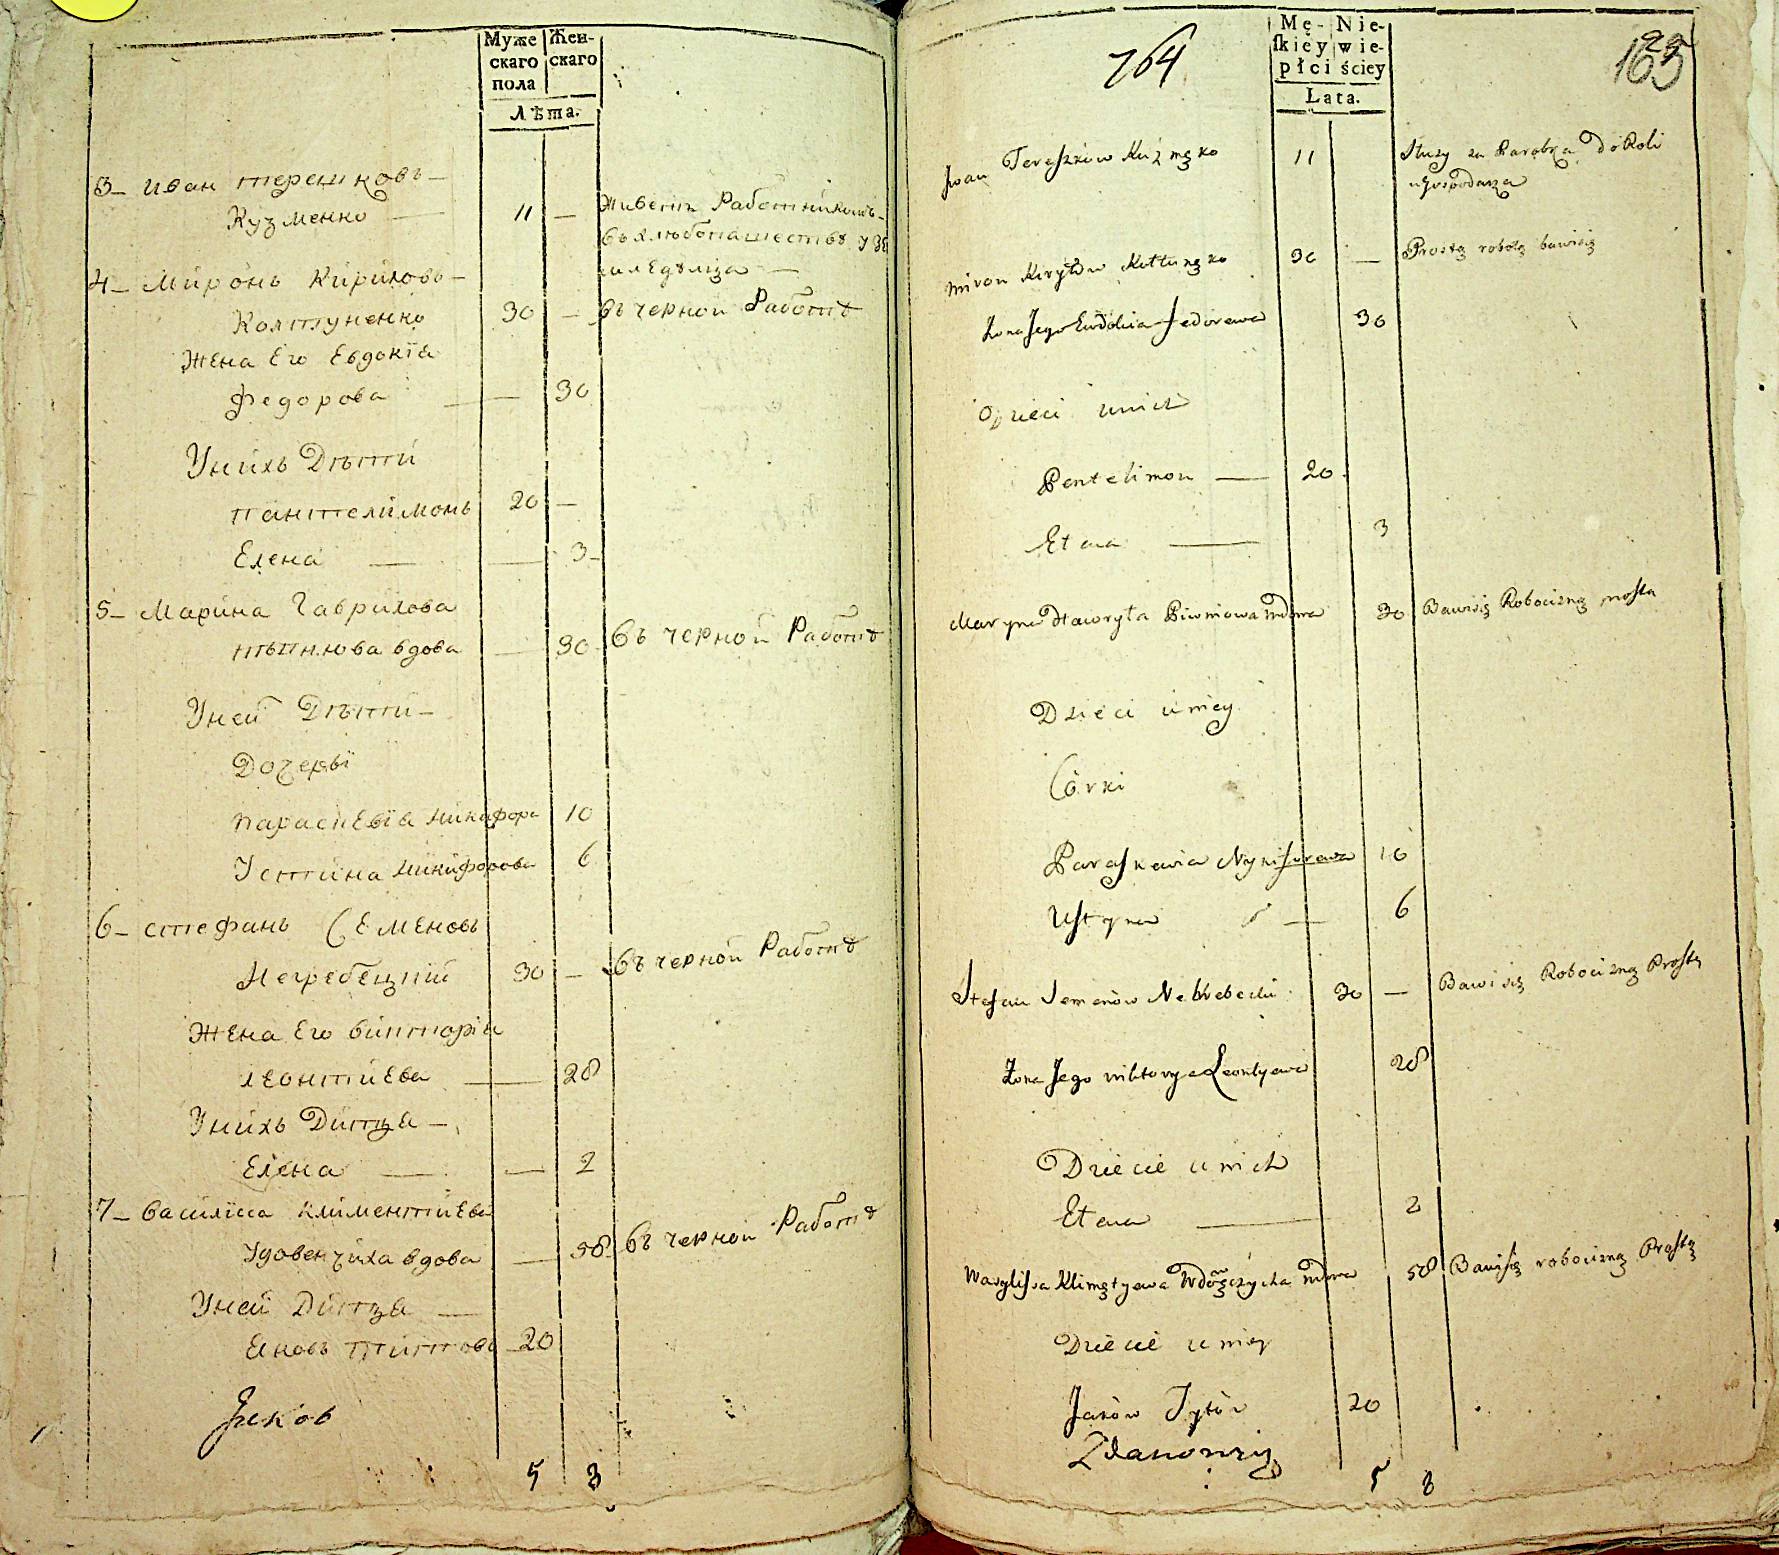 Муже Жен-
скаго скаго
пола
Лѣта.
3 – Иван Терешковъ –
Кузменко — 11 — Живетъ Работникомъ –
въ хлѣбопашествѣ у
4 – Миронъ Кириловъ –
Колтуненко 30 — Въ черной Работѣ
Жена Его Евдокїа
Федорова — 30
Унихъ Дѣти
Пантелимонъ 20 —
Елена — — 3 –
5 – Марина Гаврилова
вдова — 30 Въ черной Работѣ
Уней Дѣти –
Дочери
Параскевїа Никифоро 10
Устина Никифорова 6
6 – Стефанъ Семеновъ
Негребецкий 30 — Въ черной Работѣ
Жена Его Викторїа
Леонтиева — 28
Унихъ Дитя –
Елена — — 2
7 – Василиса Климентиева
Удовенчиха вдова — 58 Въ черной Работѣ
Уней Дитя —
Яковъ Титовъ 20
Яков
5 8
764
Mę- Nie-
skiey wie-
płci ściey
Lata.
Jwan Tereszków Kuzmęko 11 Służy za Parobka do Roli
u Gospodarza
Miron Kiryłow Kołtunęko 30 — Prostą robotą bawi się
Żona Jego Eudokia Fedorowa 30
Dzieci unich
Pentelimon — 20
Elena — 3
Maryna Hawryła Piwniowa wdowa 30 Bawi się Robocizną prosta
Dzieci u niey
Córki
Paraskewia Nykiforowa 10
Ustyna — 6
Stefan Semenów Nehrebecki 30 — Bawi się Robocizną Prostą
Żona Jego Wiktorya Leontyewa 28
Dziecie u nich
Elena — 2
Wasylissa Klimętyewa wdowa 58 Bawi się robocizną Prostą
Dziecie u niey
Jaków Tytów 20
5 8